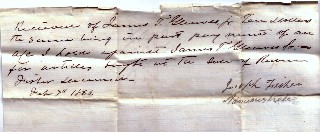 Received of James P Gleaves for Ten dollars
the same being in part payment of an
a/c I hold against James P Gleaves Sr.
for articles bought at the sale of Reuben
Fisher deceased
Feb 7th
Joseph Fisher